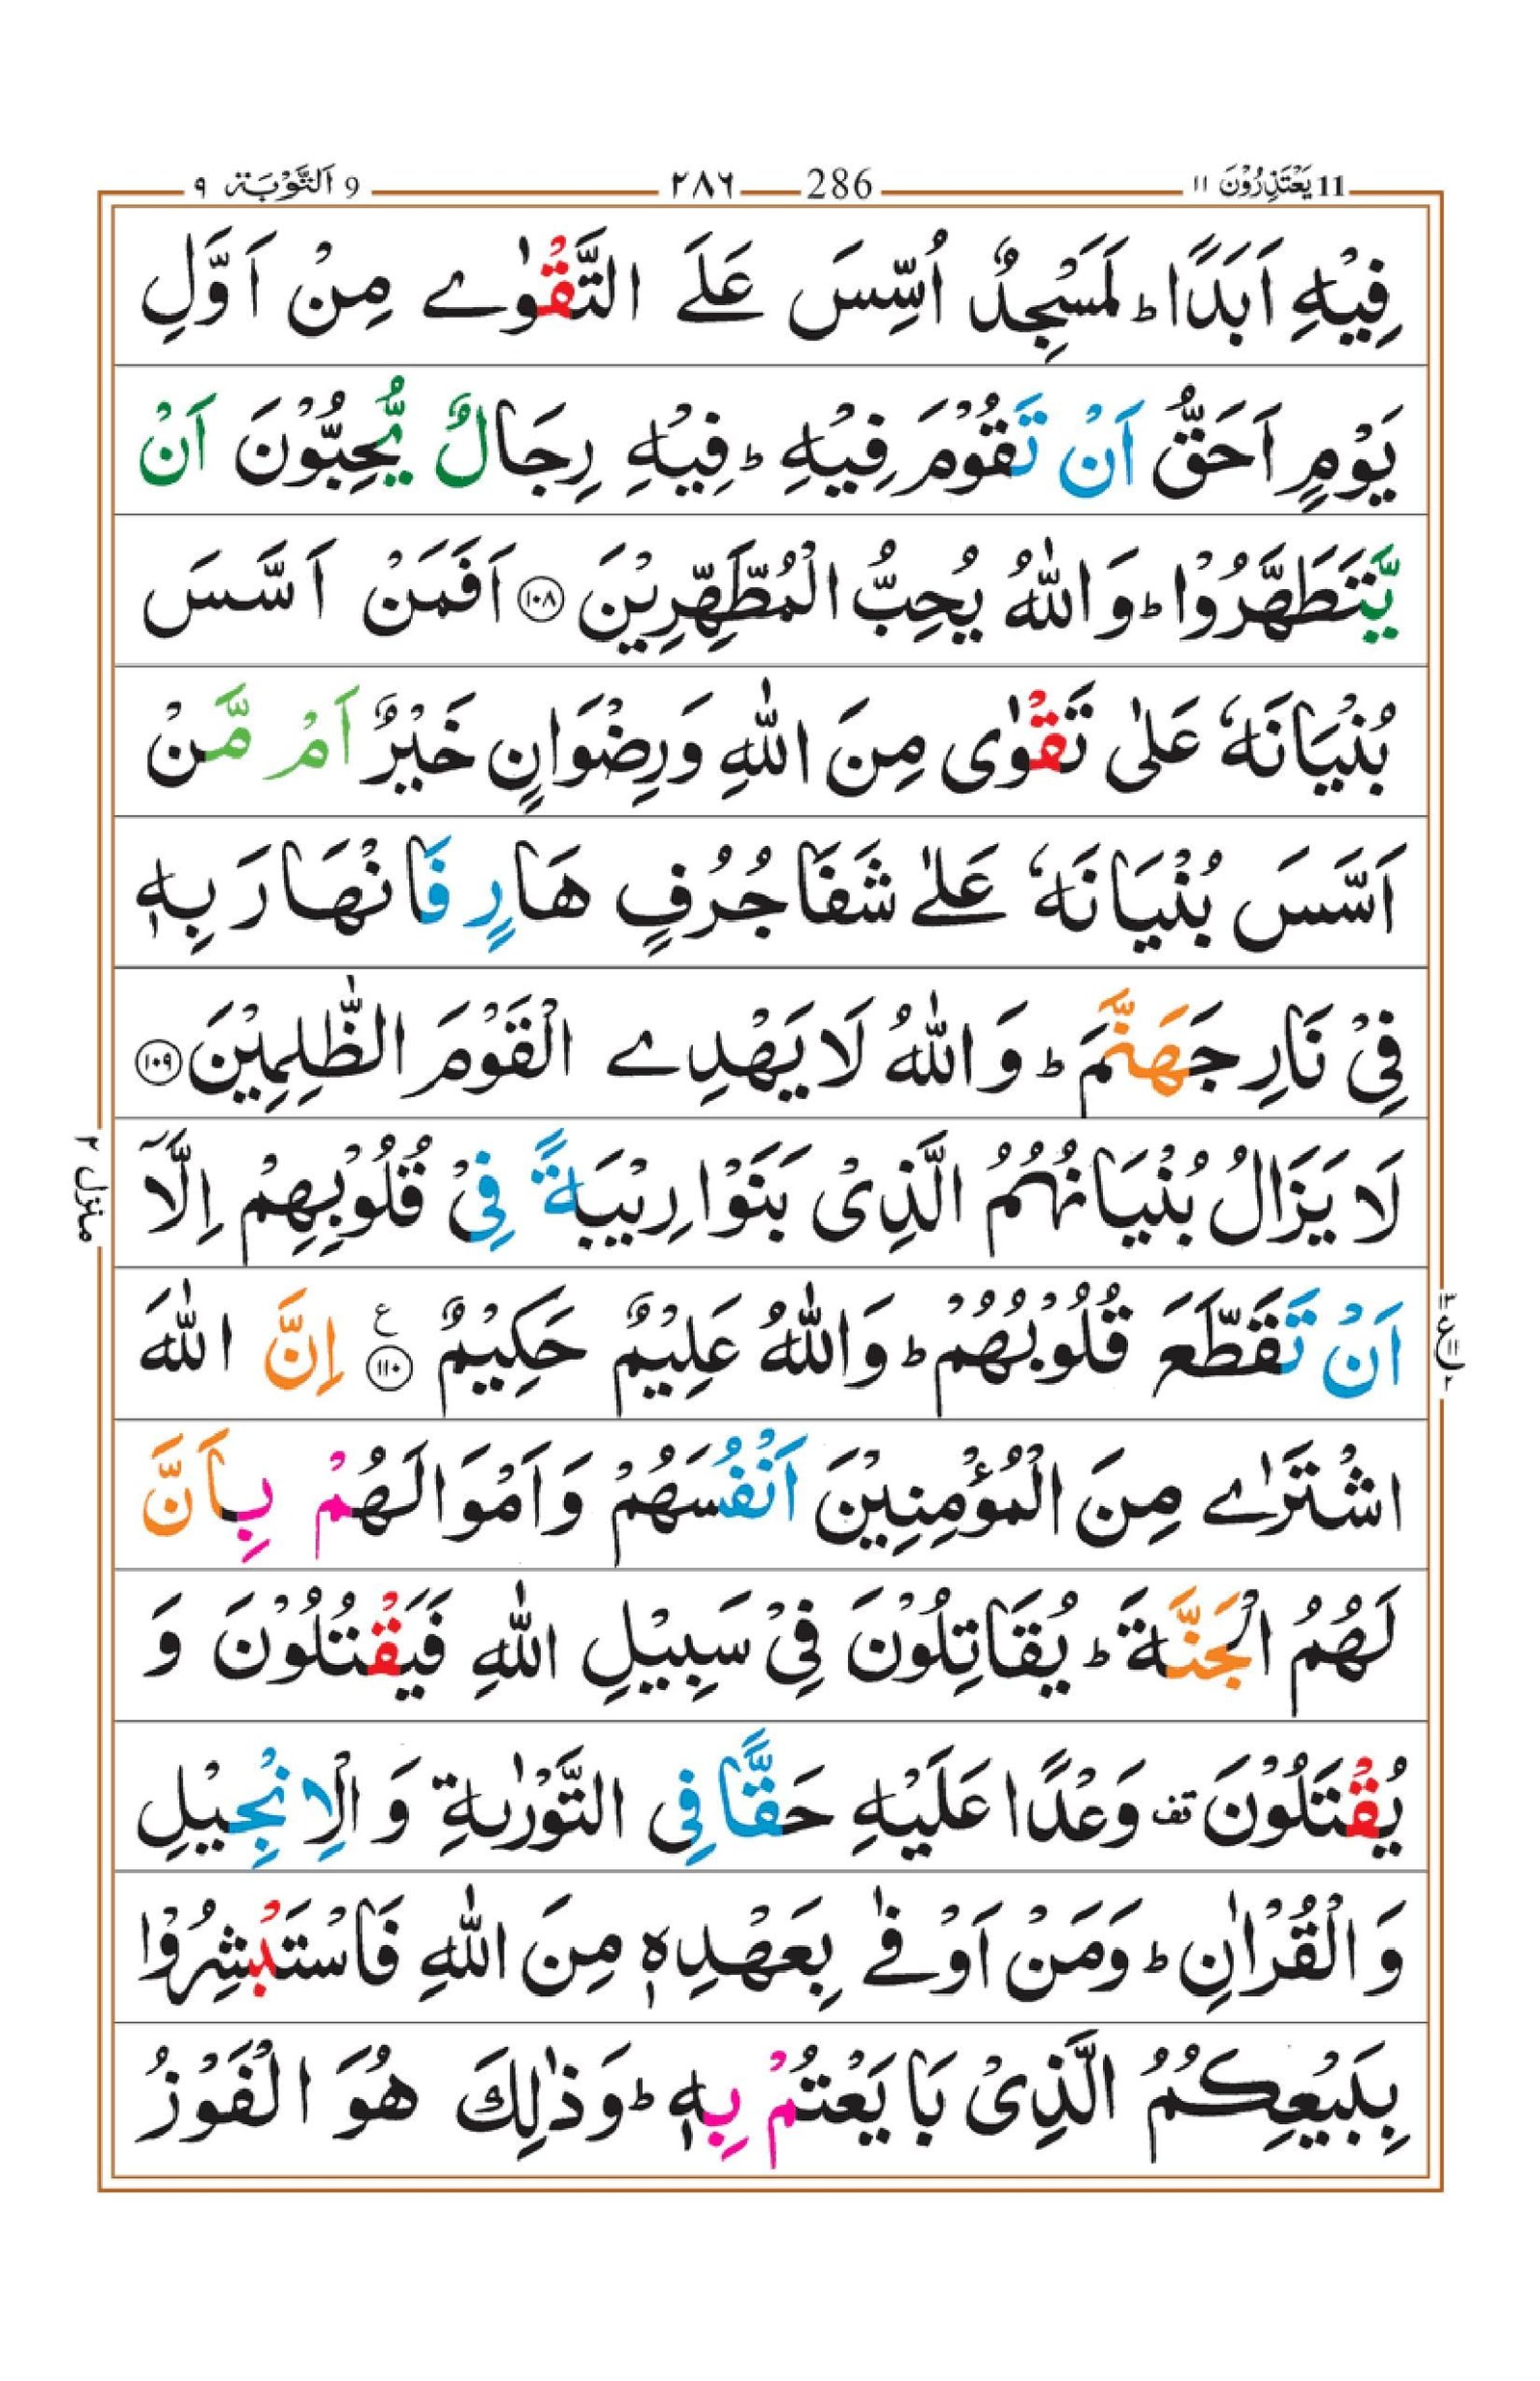 11 يَعْتَذِرُوْنَ ١١
286 ٢٨٦
9 اَلتَّوْبَة ٩
فِيْهِ اَبَدًا ؕ لَمَسْجِدٌ اُسِّسَ عَلَے التَّقْوٰے مِنْ اَوَّلِ
يَوْمٍ اَحَقُّ اَنْ تَقُوْمَ فِيْهِ ؕ فِيْهِ رِجَالٌ يُّحِبُّوْنَ اَنْ
يَّتَطَهَّرُوْا ؕ وَاللّٰهُ يُحِبُّ الْمُطَّهِّرِيْنَ ﴿١٠٨﴾ اَفَمَنْ اَسَّسَ
بُنْيَانَهٗ عَلٰى تَقْوٰى مِنَ اللّٰهِ وَرِضْوَانٍ خَيْرٌ اَمْ مَّنْ
اَسَّسَ بُنْيَانَهٗ عَلٰے شَفَا جُرُفٍ هَارٍ فَانْهَارَ بِهٖ
فِيْ نَارِ جَهَنَّمَ ؕ وَاللّٰهُ لَا يَهْدِے الْقَوْمَ الظّٰلِمِيْنَ ﴿١٠٩﴾
لَا يَزَالُ بُنْيَانُهُمُ الَّذِىْ بَنَوْا رِيْبَةً فِىْ قُلُوْبِهِمْ اِلَّاۤ
اَنْ تَقَطَّعَ قُلُوْبُهُمْ ؕ وَاللّٰهُ عَلِيْمٌ حَكِيْمٌ ﴿١١٠﴾ ع اِنَّ اللّٰهَ
اشْتَرٰے مِنَ الْمُؤْمِنِيْنَ اَنْفُسَهُمْ وَاَمْوَالَهُمْ بِاَنَّ
لَهُمُ الْجَنَّةَ ؕ يُقَاتِلُوْنَ فِىْ سَبِيْلِ اللّٰهِ فَيَقْتُلُوْنَ وَ
يُقْتَلُوْنَ تف وَعْدًا عَلَيْهِ حَقًّا فِى التَّوْرٰىةِ وَ الْاِنْجِيْلِ
وَ الْقُرْاٰنِ ؕ وَمَنْ اَوْفٰے بِعَهْدِهٖ مِنَ اللّٰهِ فَاسْتَبْشِرُوْا
بِبَيْعِكُمُ الَّذِىْ بَايَعْتُمْ بِهٖ ؕ وَذٰلِكَ هُوَ الْفَوْزُ
منزل ٢
١٣
ع ١١
٢